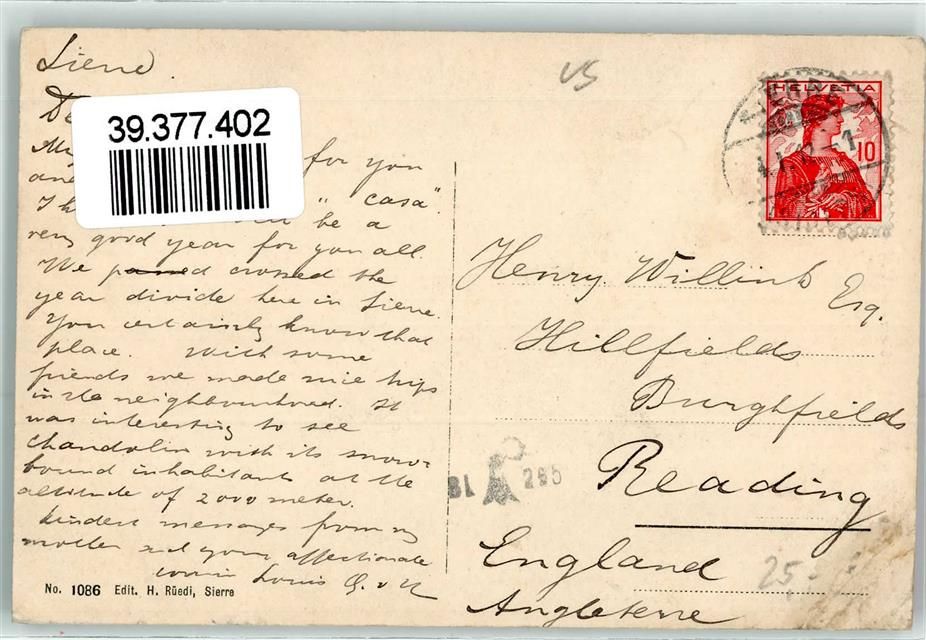 Sierre.
39.377.402
De
My for you
and "casa".
I be a
very good year for you all.
We passed crossed the
year divide here in Sierre.
You certainly know that
place. With some
friends we made nice trips
in the neighbourhood. It
was interesting to see
Chandolin with its snow-
bound inhabitants at the
altitude of 2000 meter.
Kindest messages from my
mother and your affectionate
cousin Louis
No. 1086 Edit. H. Rüedi, Sierre
US
SIERRE
HELVETIA
10
Henry Willink Esq.
Hillfields
Burghfields
Reading
England
Angleterre
265
25.-